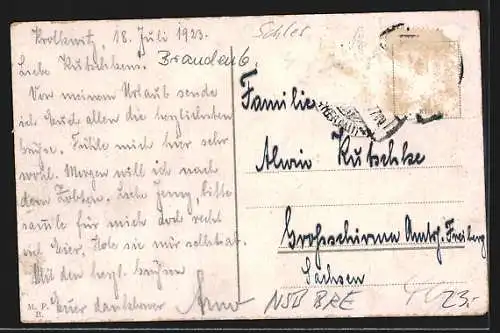 Krolkwitz, 18. Juli 1923.
Schles
Brandenb.
Liebe Kutschkens!
Von meinem Urlaub sende
ich Euch allen die herzlichsten
Grüße. Fühle mich hier sehr
wohl. Morgen will ich nach
dem Zobten. Liebe Jenny, bitte
sammle für mich doch recht
viel Eier. Hole sie mir selbst ab.
Mit den herzl. Grüßen
Euer dankbarer
M. P.
B.
Familie
Alwin Kutschke
Grossschirma Amtsh. Freiberg
Sachsen
NSB BRE
23.-